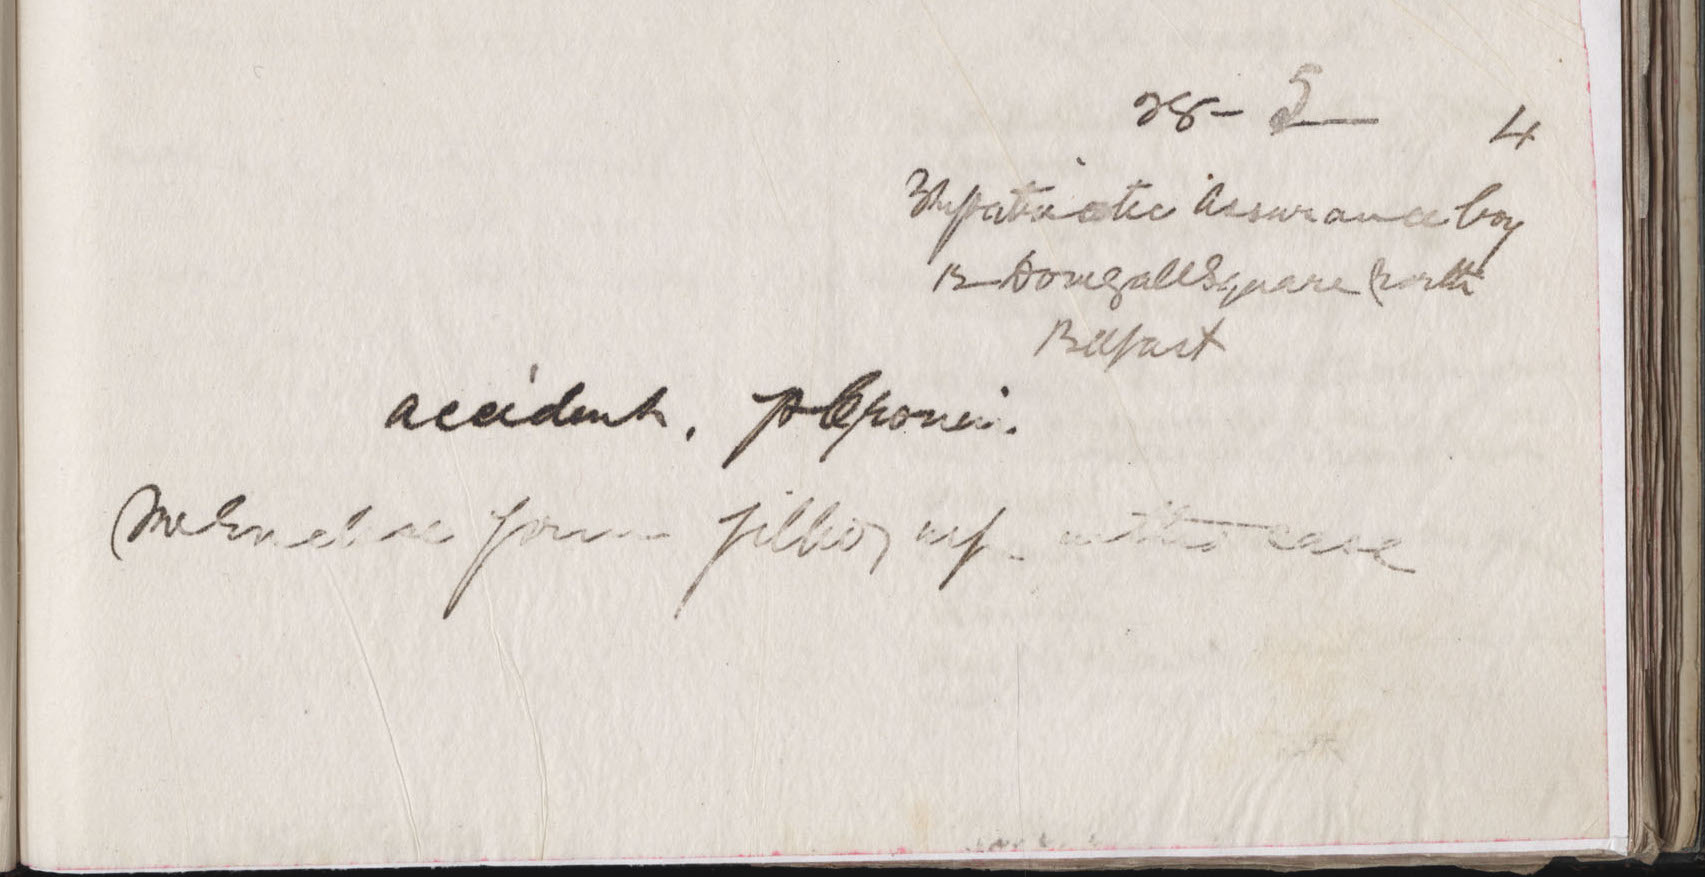 28-5 4
The patriotic Assurance Coy
12 Donegall Square North
Belfast
accident. P Cronin.
We Enclose form filled up in this case